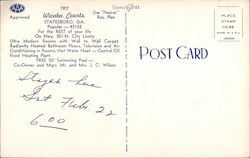 AAA
Approved
TRY
Wicobo Courts
Use "Nascar" Res. Plan
STATESBORO, GA.
Popular — 43192
For the BEST of your life
On Hwy. 301 N. City Limits
Ultra Modern Rooms with Wall to Wall Carpet
Radiantly Heated Bathroom Floors, Television and Air
Conditioning in Rooms, Hot Water Heat — Central Oil
Fired Heating Plant.
FREE 50' Swimming Pool —
Co-Owner and Mgrs. Mr. and Mrs. J. C. Wilson
POST CARD
PLACE
STAMP
HERE
Stayed here
Sat Feb 22
6.00